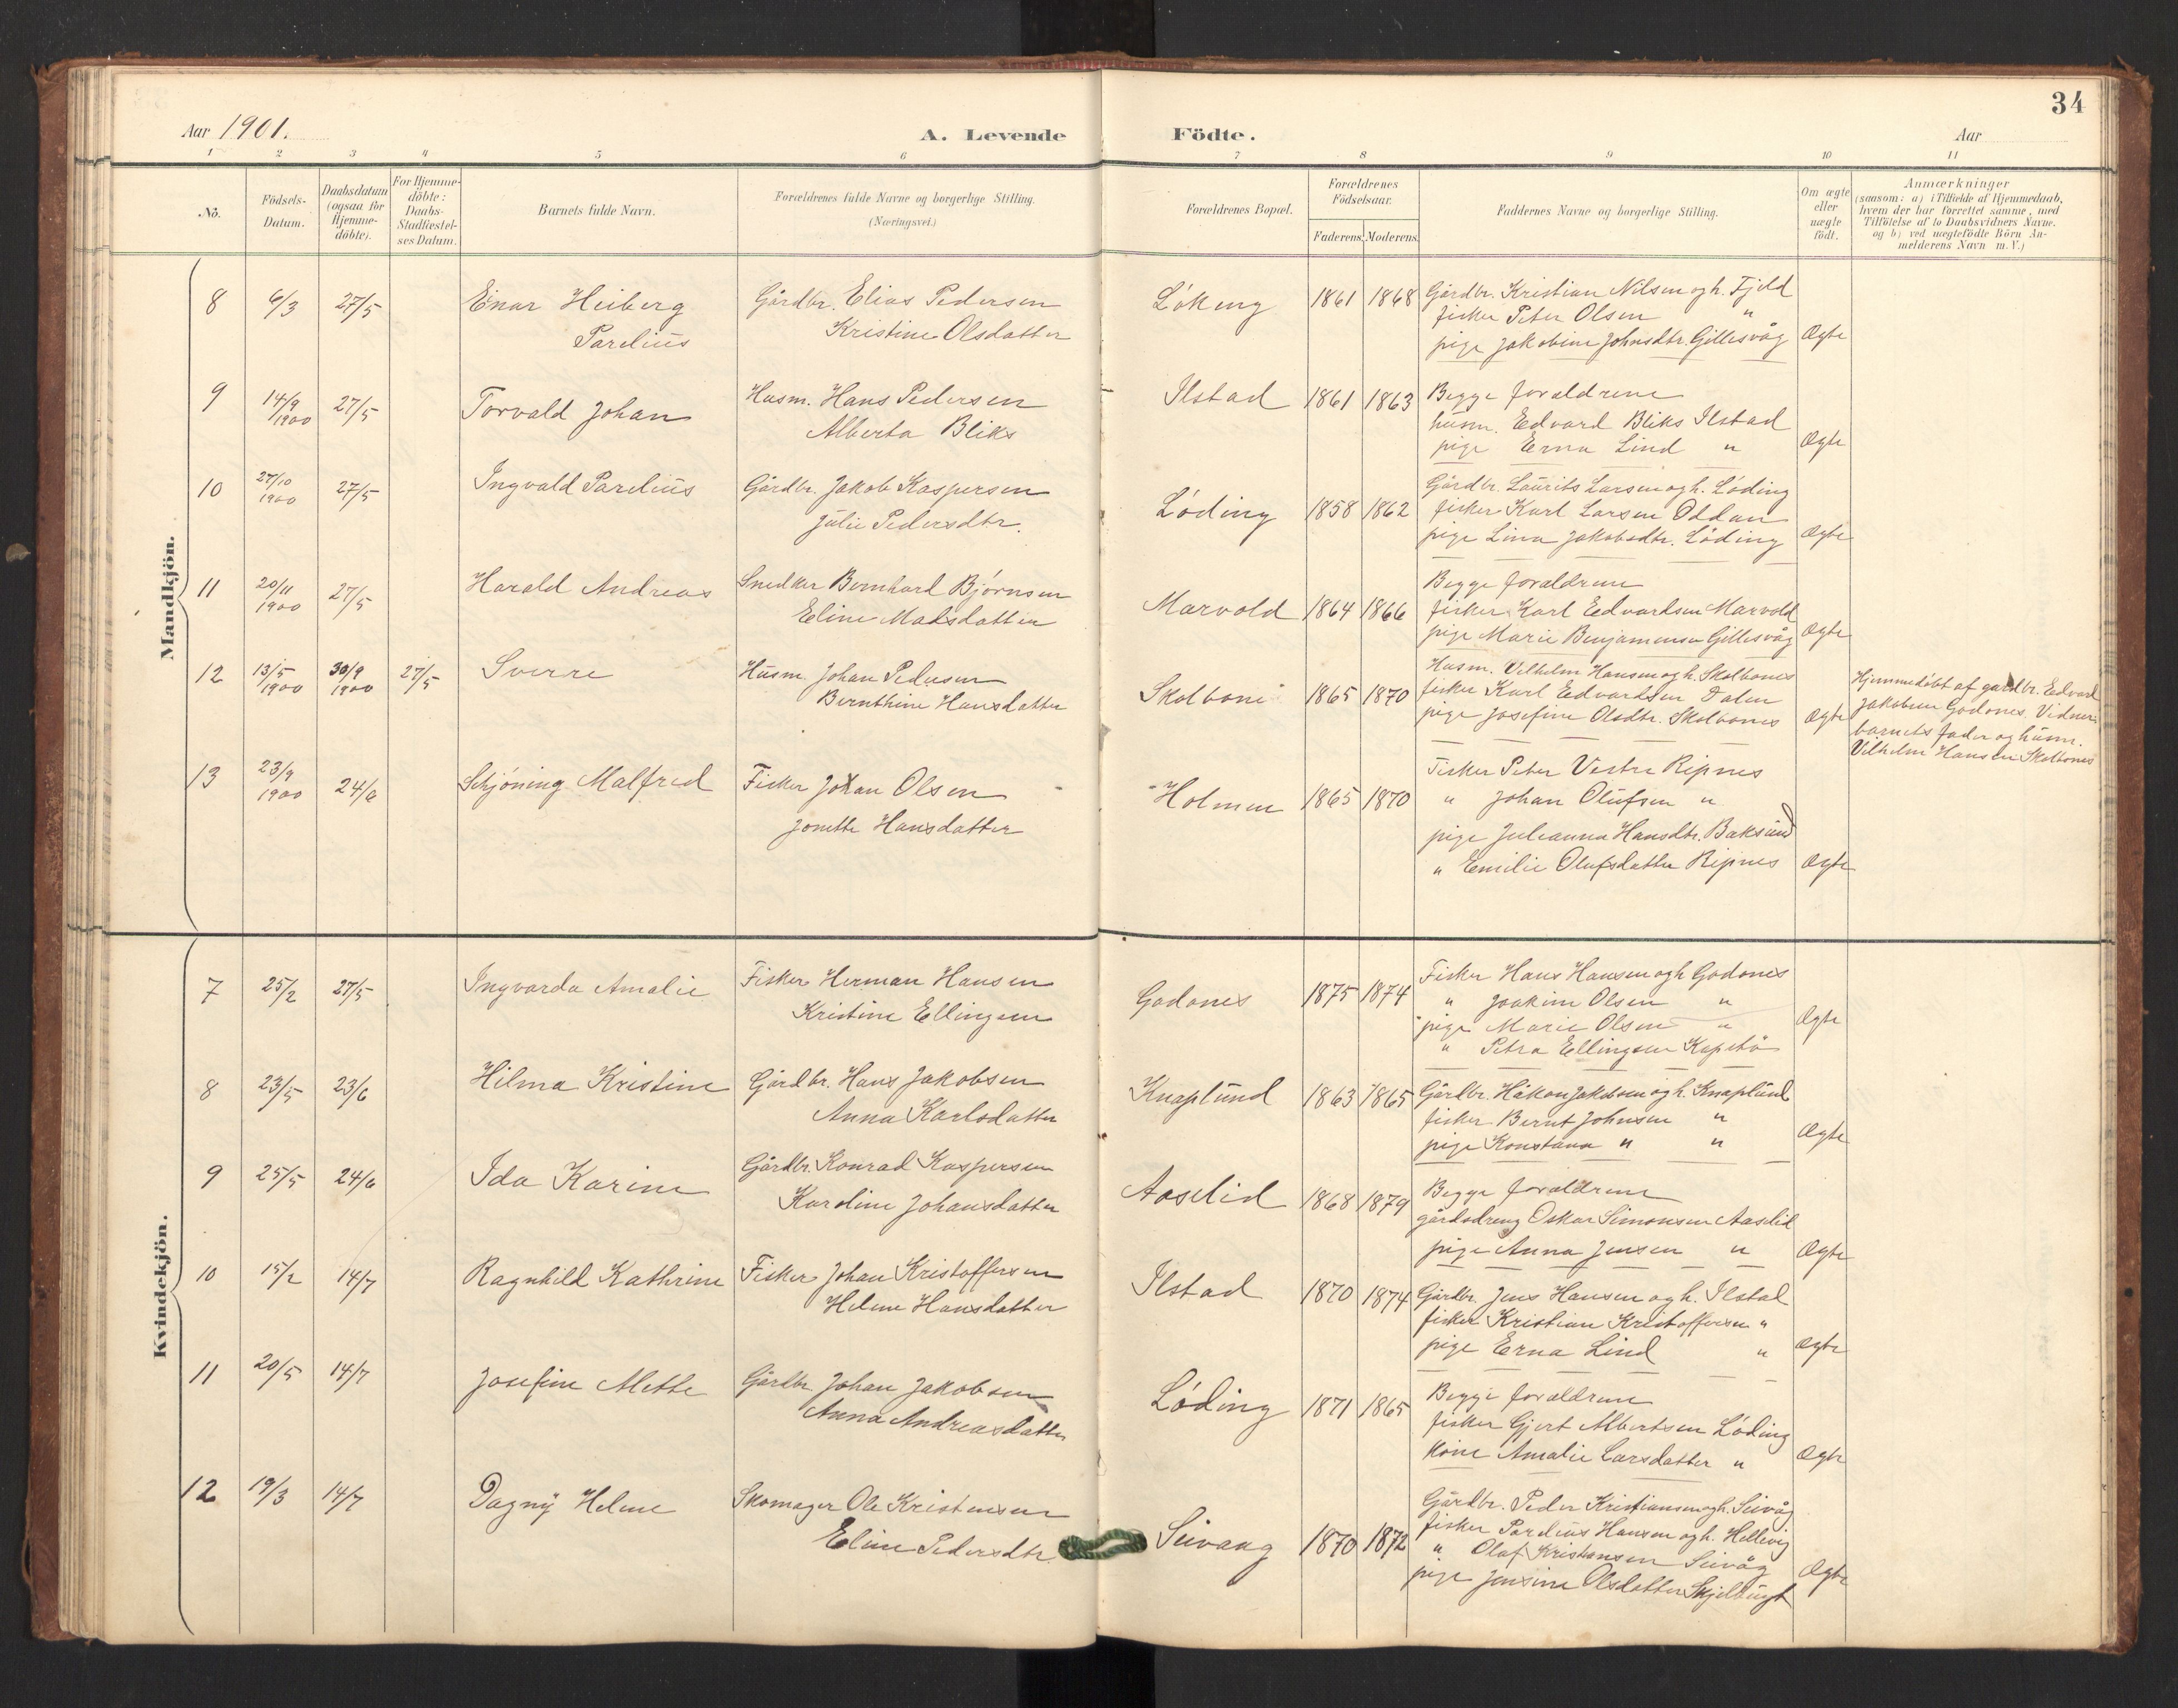 34
Aar 1901.
A. Levende Födte.
Aar
1 2 3 4 5 6 7 8 9 10 11
No.
Födsels-
Datum.
Daabsdatum
(ogsaa for
Hjemme-
döbte).
For Hjemme-
döbte:
Daabs-
Stadfæstel-
ses Datum.
Barnets fulde Navn.
Forældrenes fulde Navne og borgerlige Stilling.
(Næringsvei.)
Forældrenes Bopæl.
Forældrenes
Födselsaar.
Faderens. Moderens.
Faddernes Navne og borgerlige Stilling.
Om ægte
eller
uægte
födt.
Anmærkninger
(saasom: a) i Tilfælde af Hjemmedaab,
hvem der har forrettet samme, med
Tilföielse af to Daabsvidners Navne.
og b) ved uægtefödte Börn An-
melderens Navn m. V.)
Mandkjön.
8 6/3 27/5 Einar Heiberg
Parelius
Gårdbr. Elias Pedersen
Kristine Olsdatter
Løkeng 1861 1868
Gårdbr. Kristian Nilsen og h. Fjeld
fisker Peter Olsen "
pige Jakobine Johnsdtr. Gillesvåg
Ægte
9 14/9 1900 27/5 Torvald Johan
Husm. Hans Pedersen
Alberta Bliks
Ilstad 1861 1863
Begge forældrene
husm. Edvard Bliks Ilstad
pige Erna Lind "
Ægte
10 27/10 1900 27/5 Ingvald Parelius
Gårdbr. Jakob Kaspersen
Julie Pedersdtr.
Løding 1858 1862
Gårdbr. Laurits Larsen og h. Løding
fisker Karl Larsen Oddan
pige Lina Jakobsdtr. Løding
Ægte
11 20/11 1900 27/5 Harald Andreas
Snedker Bernhard Bjørnsen
Eline Matsdatter
Marvold 1864 1866
Begge forældrene
fisker Karl Edvardsen Marvold
pige Marie Benjaminsen Gillesvåg
Ægte
12 13/5 1900 30/9 1900 27/5 Sverre
Husm. Johan Pedersen
Bernthine Hansdatter
Skolbone 1865 1870
Husm. Vilhelm Hansen og h. Skolbones
fisker Karl Edvardsen Dalen
pige Josefine Olsdtr. Skolbones
Ægte
Hjemmedøbt af gardbr. Edvard
Jakobsen Godønes. Vidner:
barnets fader og husm.
Vilhelm Hansen Skolbones
13 23/9 1900 24/6 Schjøning Malfred
Fisker Johan Olsen
Jonette Hansdatter
Holmen 1865 1870
Fisker Peter Vestre Ripnes
" Johan Olufsen "
pige Juleanna Hansdtr. Baksund
" Emilie Olufsdatter Ripnes
Ægte
Kvindekjön.
7 25/2 27/5 Ingvarda Amalie
Fisker Herman Hansen
Kristine Ellingsen
Godønes 1875 1874
Fisker Hans Hansen og h. Godønes
" Joakim Olsen "
pige Marie Olsen "
" Petra Ellingsen Kapstø
Ægte
8 23/5 23/6 Hilma Kristine
Gårdbr. Hans Jakobsen
Anna Karlsdatter
Knaplund 1863 1865
Gårdbr. Håkon Jakobsen og h. Knaplund
fisker Bernt Johnsen "
pige Konstana " "
Ægte
9 25/5 24/6 Ida Karine
Gårdbr. Konrad Kaspersen
Karoline Johansdatter
Aaselid 1868 1879
Begge forældrene
gårdsdreng Oskar Simonsen Aaselid
pige Anna Jensen "
Ægte
10 15/2 14/7 Ragnhild Kathrine
Fisker Johan Kristoffersen
Helene Hansdatter
Ilstad 1870 1874
Gårdbr. Jens Hansen og h. Ilstad
fisker Kristian Kristoffersen "
pige Erna Lind "
Ægte
11 20/5 14/7 Josefine Mette
Gårdbr. Johan Jakobsen
Anna Andreasdatter
Løding 1871 1865
Begge forældrene
fisker Gjert Albertsen Løding
kone Amalie Larsdatter "
Ægte
12 19/3 14/7 Dagny Helene
Skomager Ole Kristensen
Eline Pedersdtr.
Seivaag 1870 1872
Gårdbr. Peder Kristiansen og h. Seivåg
fisker Parelius Hansen og h. Hellevig
" Olaf Kristiansen Seivåg
pige Jensine Olsdatter Skjelbugt
Ægte